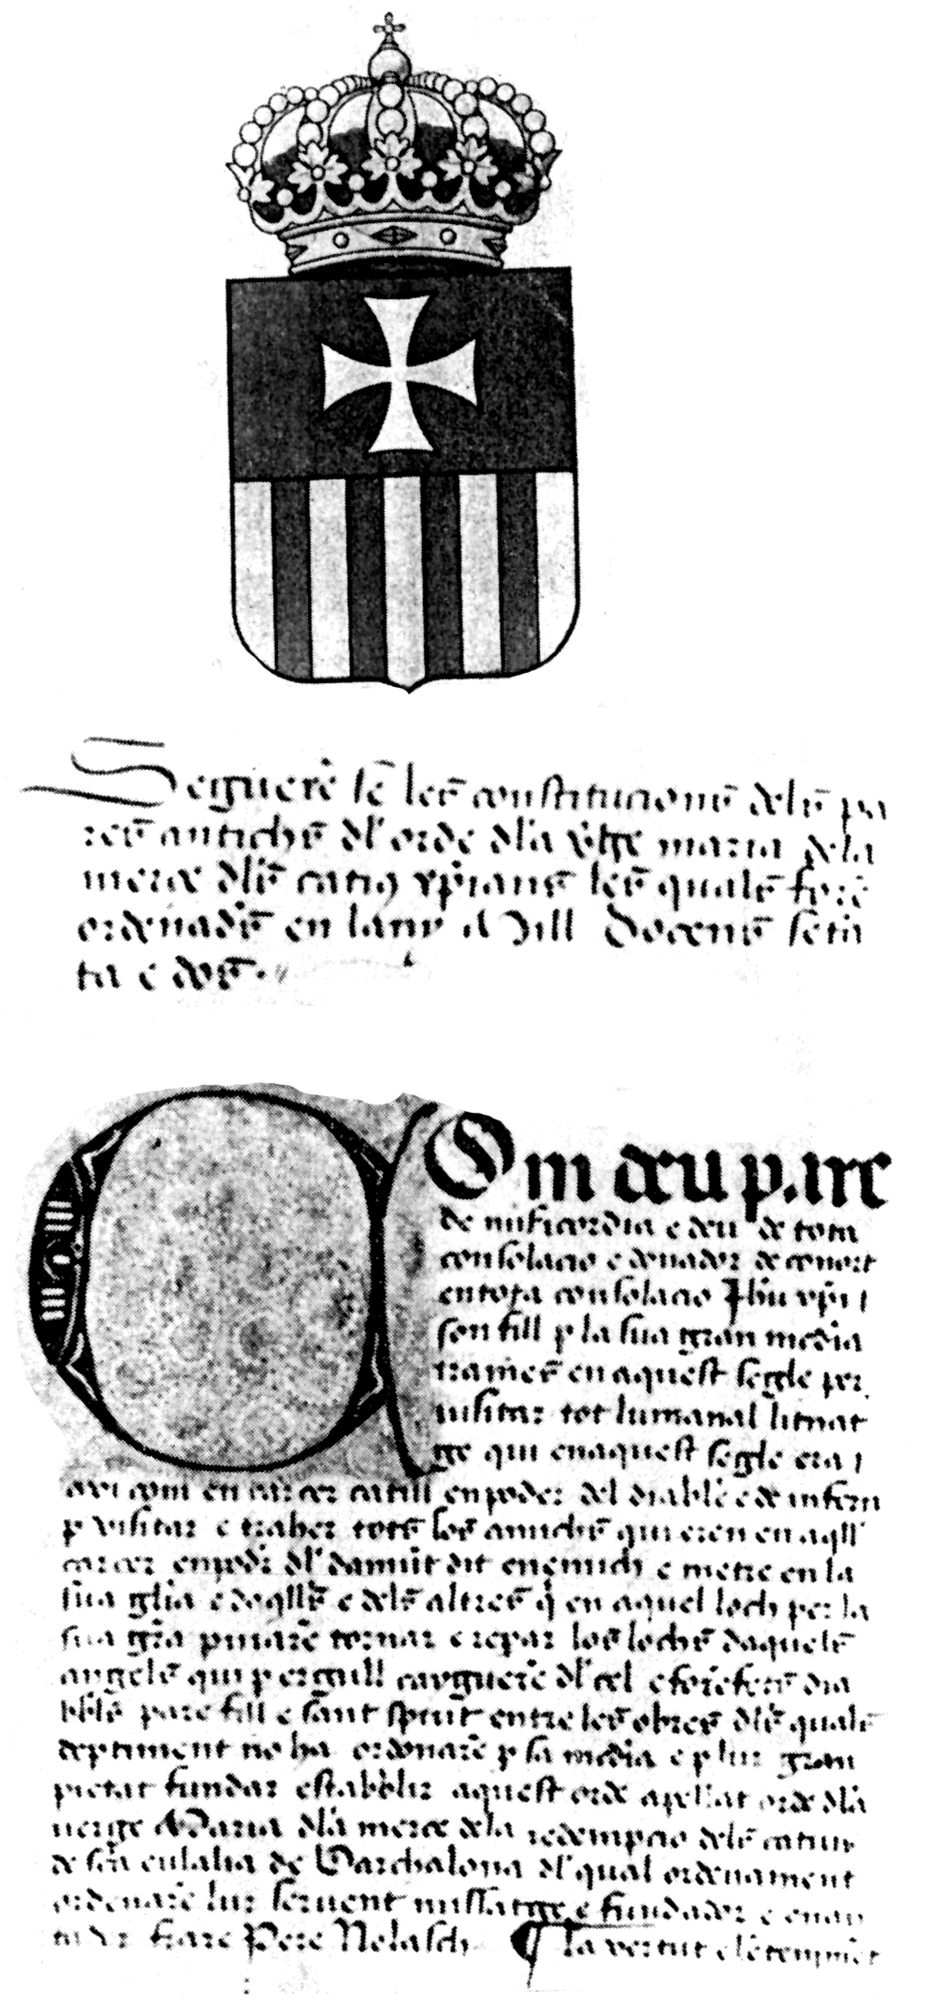 Seguerē sē les constitucions dels pa
res antichs dl orde dla v̄ge maria dela
merce dls catius xp̄ians les quals forē
ordenades en lany Mill Docens seta
ta e dos
Om deu pare
de misicordia e deu de tota
consolacio e donador de conort
en tota consolacio Jhu xp̄i
son fill p la sua gran mcdia
trames en aquest segle per
visitar tot lumanal linat
ge qui en aquest segle era
en carcer catiu en poder del diable e de infern
p visitar e traher tots los amichs qui eren en aqll
carcer en poder dl damūt dit enemich e metre en la
sua glia e daqlls e dels altres q̄ en aquel loch per la
sua gr̄a tornar e repar los lochs daquels
angels qui p ergull caygueren dl cel e foren fets dia
bbls pare fill e sant sperit entre les obres dls quals
deptiment no ha ordonarē p sa mcdia e p lur gran
pietat fundar establir aquest orde apellat orde dla
verge Maria dla merce dela redempcio dels catius
de sc̄a eulalia de Barchalona dl qual ordenament
ordenarē lur servent missatge e fundador e enan
tador frare Pere Nolasch ¶ la vertut